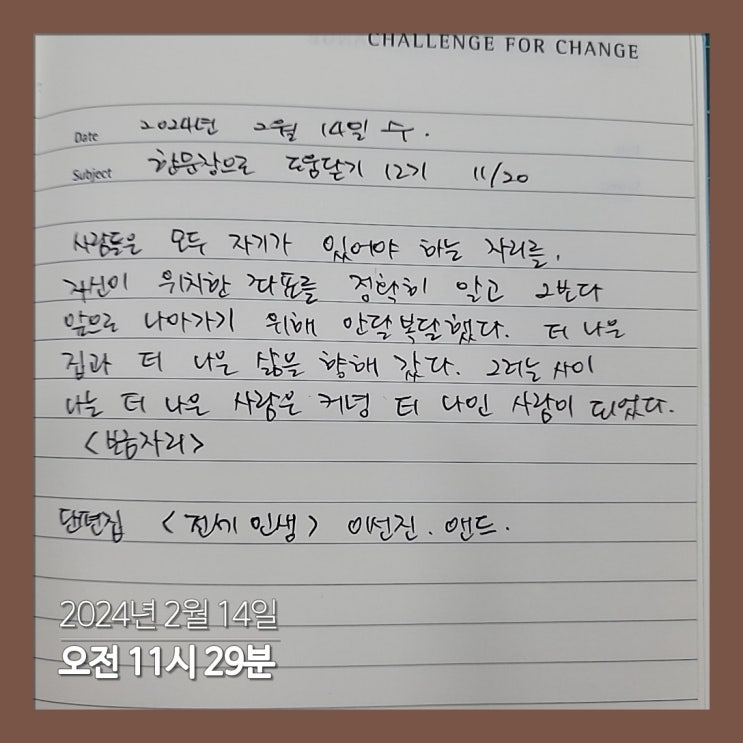 CHALLENGE FOR CHANGE
Date 2024년 2월 14일 수.
Subject 한문장으로 도움닫기 12기 11/20
사람들은 모두 자기가 있어야 하는 자리를,
자신이 위치한 좌표를 정확히 알고 그보다
앞으로 나아가기 위해 안달복달했다. 더 나은
집과 더 나은 삶을 향해 갔다. 그러는 사이
나는 더 나은 사람은 커녕 더 나인 사람이 되었다.
<보금자리>
단편집 <전세 인생> 이선진. 앤드.
2024년 2월 14일
오전 11시 29분